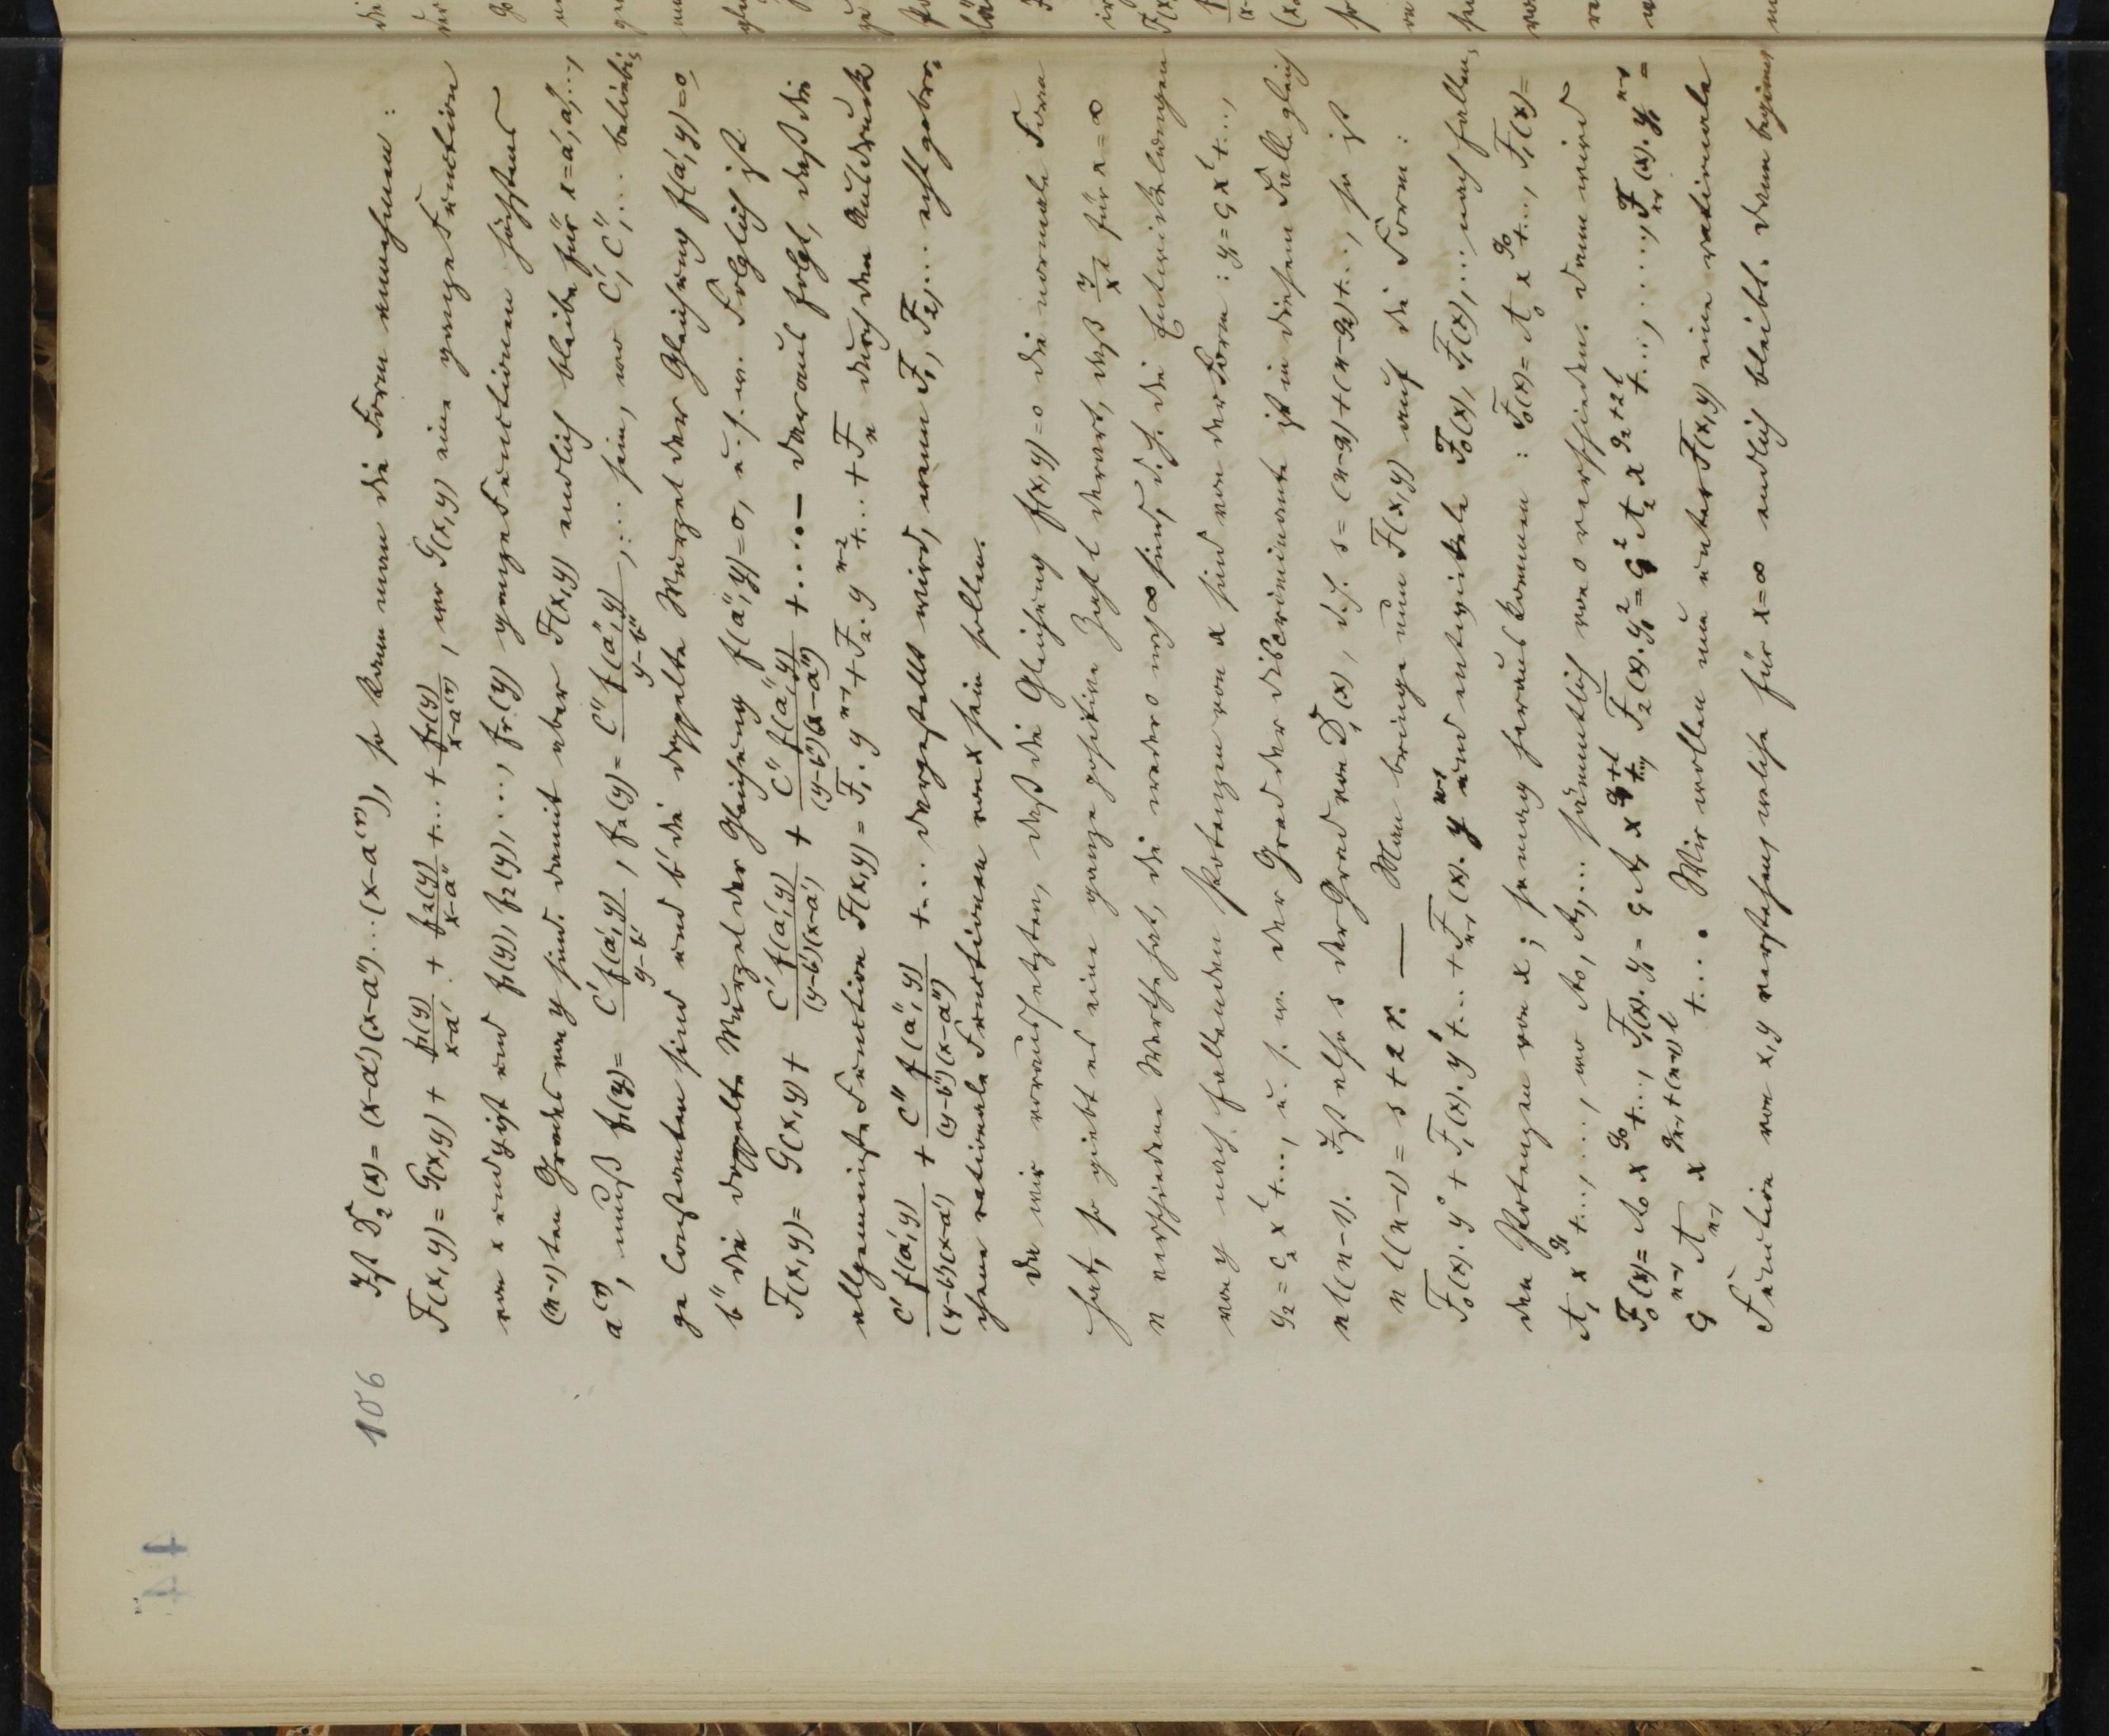 106
Ist D₂(x) = (x-a')(x-a'')...(x-a⁽ʳ⁾), so kann man die Form annehmen:
F(x,y) = G(x,y) + f₁(y)/(x-a') + f₂(y)/(x-a'') + ... + fᵣ(y)/(x-a⁽ʳ⁾), wo G(x,y) eine ganze Function
von x und y ist und f₁(y), f₂(y), ..., fᵣ(y) ganze Functionen höchstens
(n-1)ten Grades von y sind. Damit aber F(x,y) endlich bleibe für x=a', a'', ...,
a⁽ʳ⁾, muß f₁(y) = C' f(a',y)/(y-b'), f₂(y) = C'' f(a'',y)/(y-b''), ... sein, wo C', C'', ... beliebi-
ge Constanten sind und b' die doppelte Wurzel der Gleichung f(a',y)=0
b'' die doppelte Wurzel der Gleichung f(a'',y)=0, u.s.w. Folglich ist
F(x,y) = G(x,y) + C' f(a',y)/((y-b')(x-a')) + C'' f(a'',y)/((y-b'')(x-a'')) + .... — Daraus folgt, daß die
allgemeinste Function F(x,y) = F₁.yⁿ⁻¹ + F₂.yⁿ⁻² + ... + Fₙ durch den Ausdruck
C' f(a',y)/((y-b')(x-a')) + C'' f(a'',y)/((y-b'')(x-a'')) + ... dargestellt wird, wenn F₁, F₂, ... echt gebro-
chene rationale Functionen von x sein sollen.
Da wir voraussetzten, daß die Gleichung f(x,y)=0 die normale Form
hat, so giebt es eine ganze positive Zahl l derart, daß y/xˡ für x=∞
n verschiedene Werthe hat, die weder 0 noch ∞ sind, d.h. die Entwickelungen
von y nach fallenden Potenzen von x sind von der Form: y₁ = c₁xˡ+...,
y₂ = c₂xˡ+..., u.s.w. Der Grad der Discriminante ist in diesem Falle gleich
nl(n-1). Ist also s der Grad von D₁(x), d.h. s = (n-g₁)+(n-g₂)+..., so ist
nl(n-1) = s+2r. — Man bringe nun F(x,y) auf die Form:
F₀(x).y⁰ + F₁(x).y¹+... + Fₙ₋₁(x).yⁿ⁻¹ und entwickele F₀(x), F₁(x), ... nach fallen-
den Potenzen von x; danach herauskommen: F₀(x) = A₀x^g₀+..., F₁(x) =
A₁x^g₁+..., ..., wo A₀, A₁, ... sämmtlich von 0 verschieden. Dann wird
F₀(x) = A₀x^g₀+..., F₁(x).y₁ = c₁A₁x^(g₁+l)+..., F₂(x).y₁² = c₁²A₂x^(g₂+2l)+..., ....., Fₙ₋₁(x).y₁ⁿ⁻¹ =
c₁ⁿ⁻¹Aₙ₋₁x^(gₙ₋₁+(n-1)l)+.... Wir wollen nun unter F(x,y) eine rationale
Function von x,y verstehen, welche für x=∞ endlich bleibt. Dann